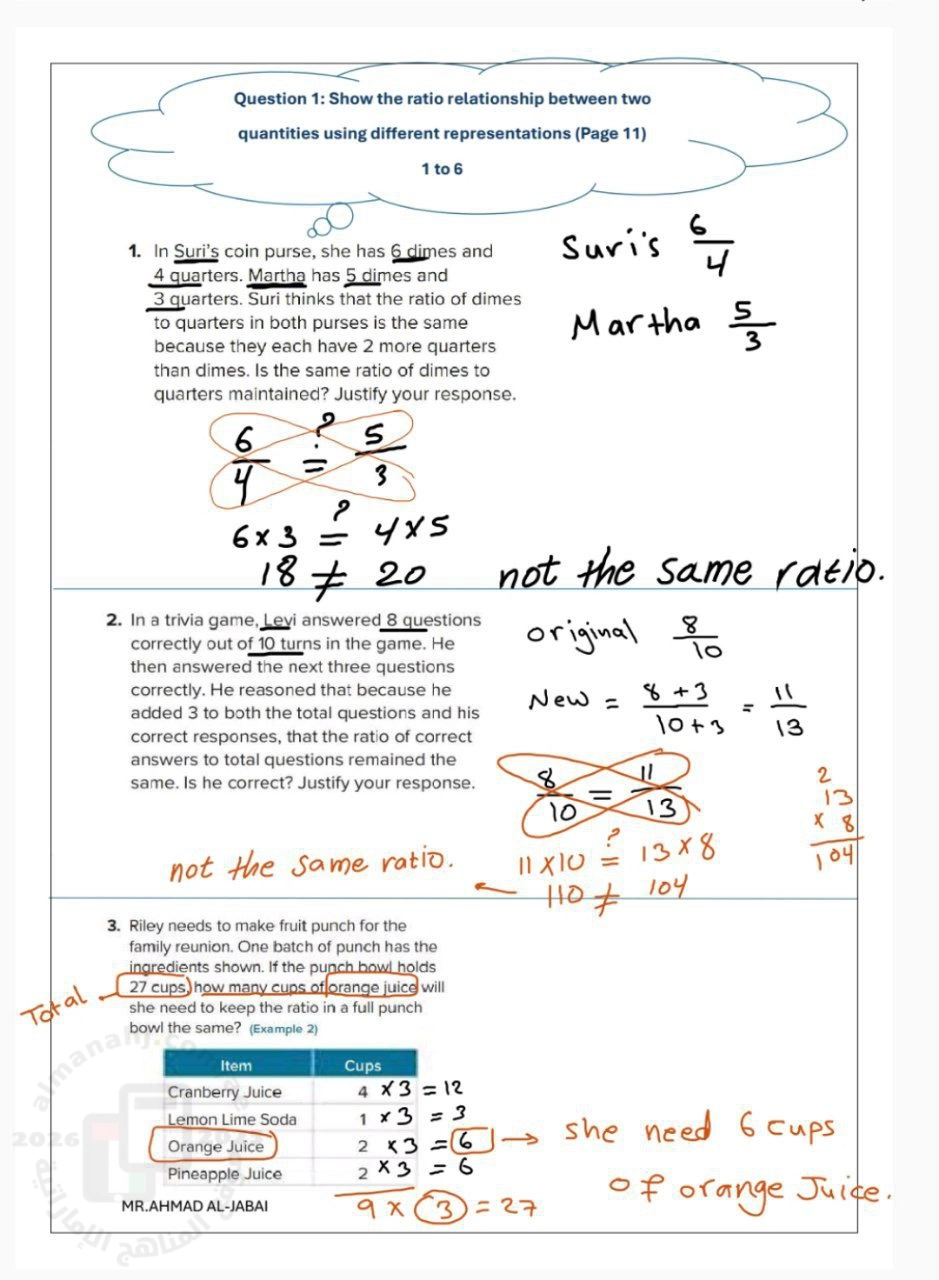 Question 1: Show the ratio relationship between two
quantities using different representations (Page 11)
1 to 6
1. In Suri's coin purse, she has 6 dimes and
4 quarters. Martha has 5 dimes and
3 quarters. Suri thinks that the ratio of dimes
to quarters in both purses is the same
because they each have 2 more quarters
than dimes. Is the same ratio of dimes to
quarters maintained? Justify your response.
Suri's 6/4
Martha 5/3
6/4 ?= 5/3
6 x 3 ?= 4 x 5
18 ≠ 20
not the same ratio.
2. In a trivia game, Levi answered 8 questions
correctly out of 10 turns in the game. He
then answered the next three questions
correctly. He reasoned that because he
added 3 to both the total questions and his
correct responses, that the ratio of correct
answers to total questions remained the
same. Is he correct? Justify your response.
original 8/10
New = 8+3/10+3 = 11/13
8/10 = 11/13
2
13
x 8
104
11 x 10 ?= 13 x 8
110 ≠ 104
not the same ratio.
3. Riley needs to make fruit punch for the
family reunion. One batch of punch has the
ingredients shown. If the punch bowl holds
27 cups, how many cups of orange juice will
she need to keep the ratio in a full punch
bowl the same? (Example 2)
Total
Item Cups
Cranberry Juice 4 x 3 = 12
Lemon Lime Soda 1 x 3 = 3
Orange Juice 2 x 3 = 6
Pineapple Juice 2 x 3 = 6
9 x 3 = 27
she need 6 cups
of orange Juice.
MR.AHMAD AL-JABAI
almanahj.com
2026
المناهج الإماراتية